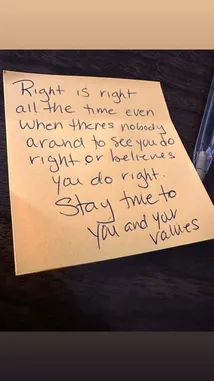 Right is right
all the time even
when theres nobody
arand to see you do
right or believes
you do right.
Stay true to
you and your
values